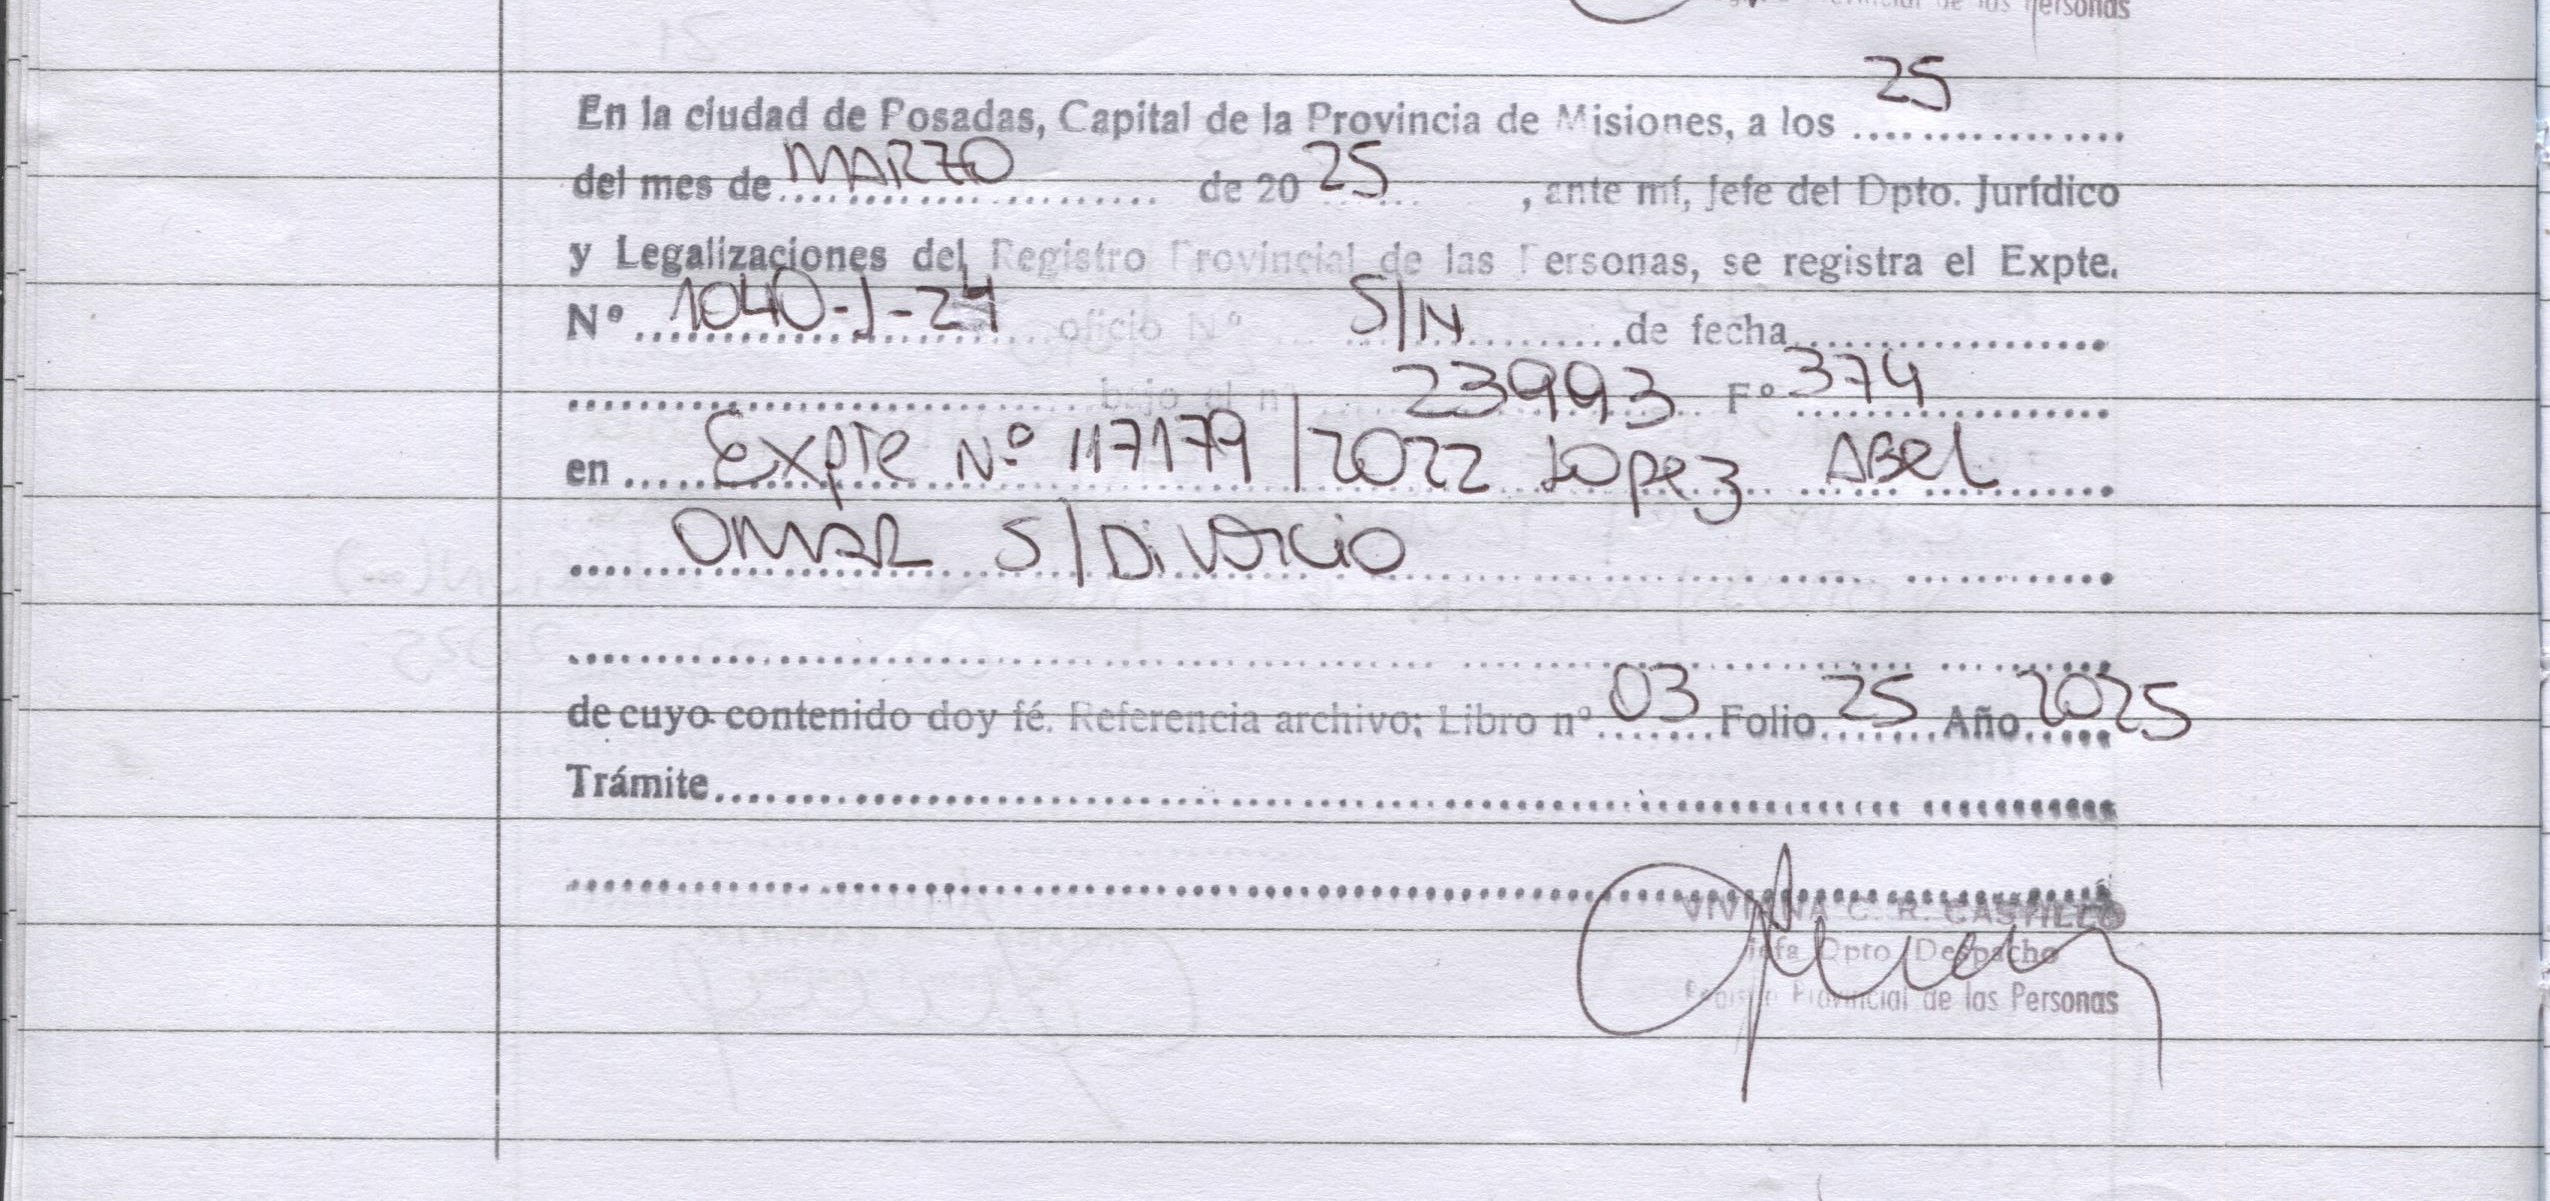 de las Personas
En la ciudad de Posadas, Capital de la Provincia de Misiones, a los 25
del mes de MARZO de 20 25, ante mí, Jefe del Dpto. Jurídico
y Legalizaciones del Registro Provincial de las Personas, se registra el Expte.
Nº 1040-J-24 oficio Nº S/N de fecha
bajo el nº 23993 Fº 374
en Expte Nº 117179/2022 Lopez Abel
OMAR S/Divorcio
de cuyo contenido doy fé. Referencia archivo: Libro nº 03 Folio 25 Año 2025
Trámite
VIVIANA C. R. CASTILLO
Jefa Dpto Despacho
Registro Provincial de las Personas